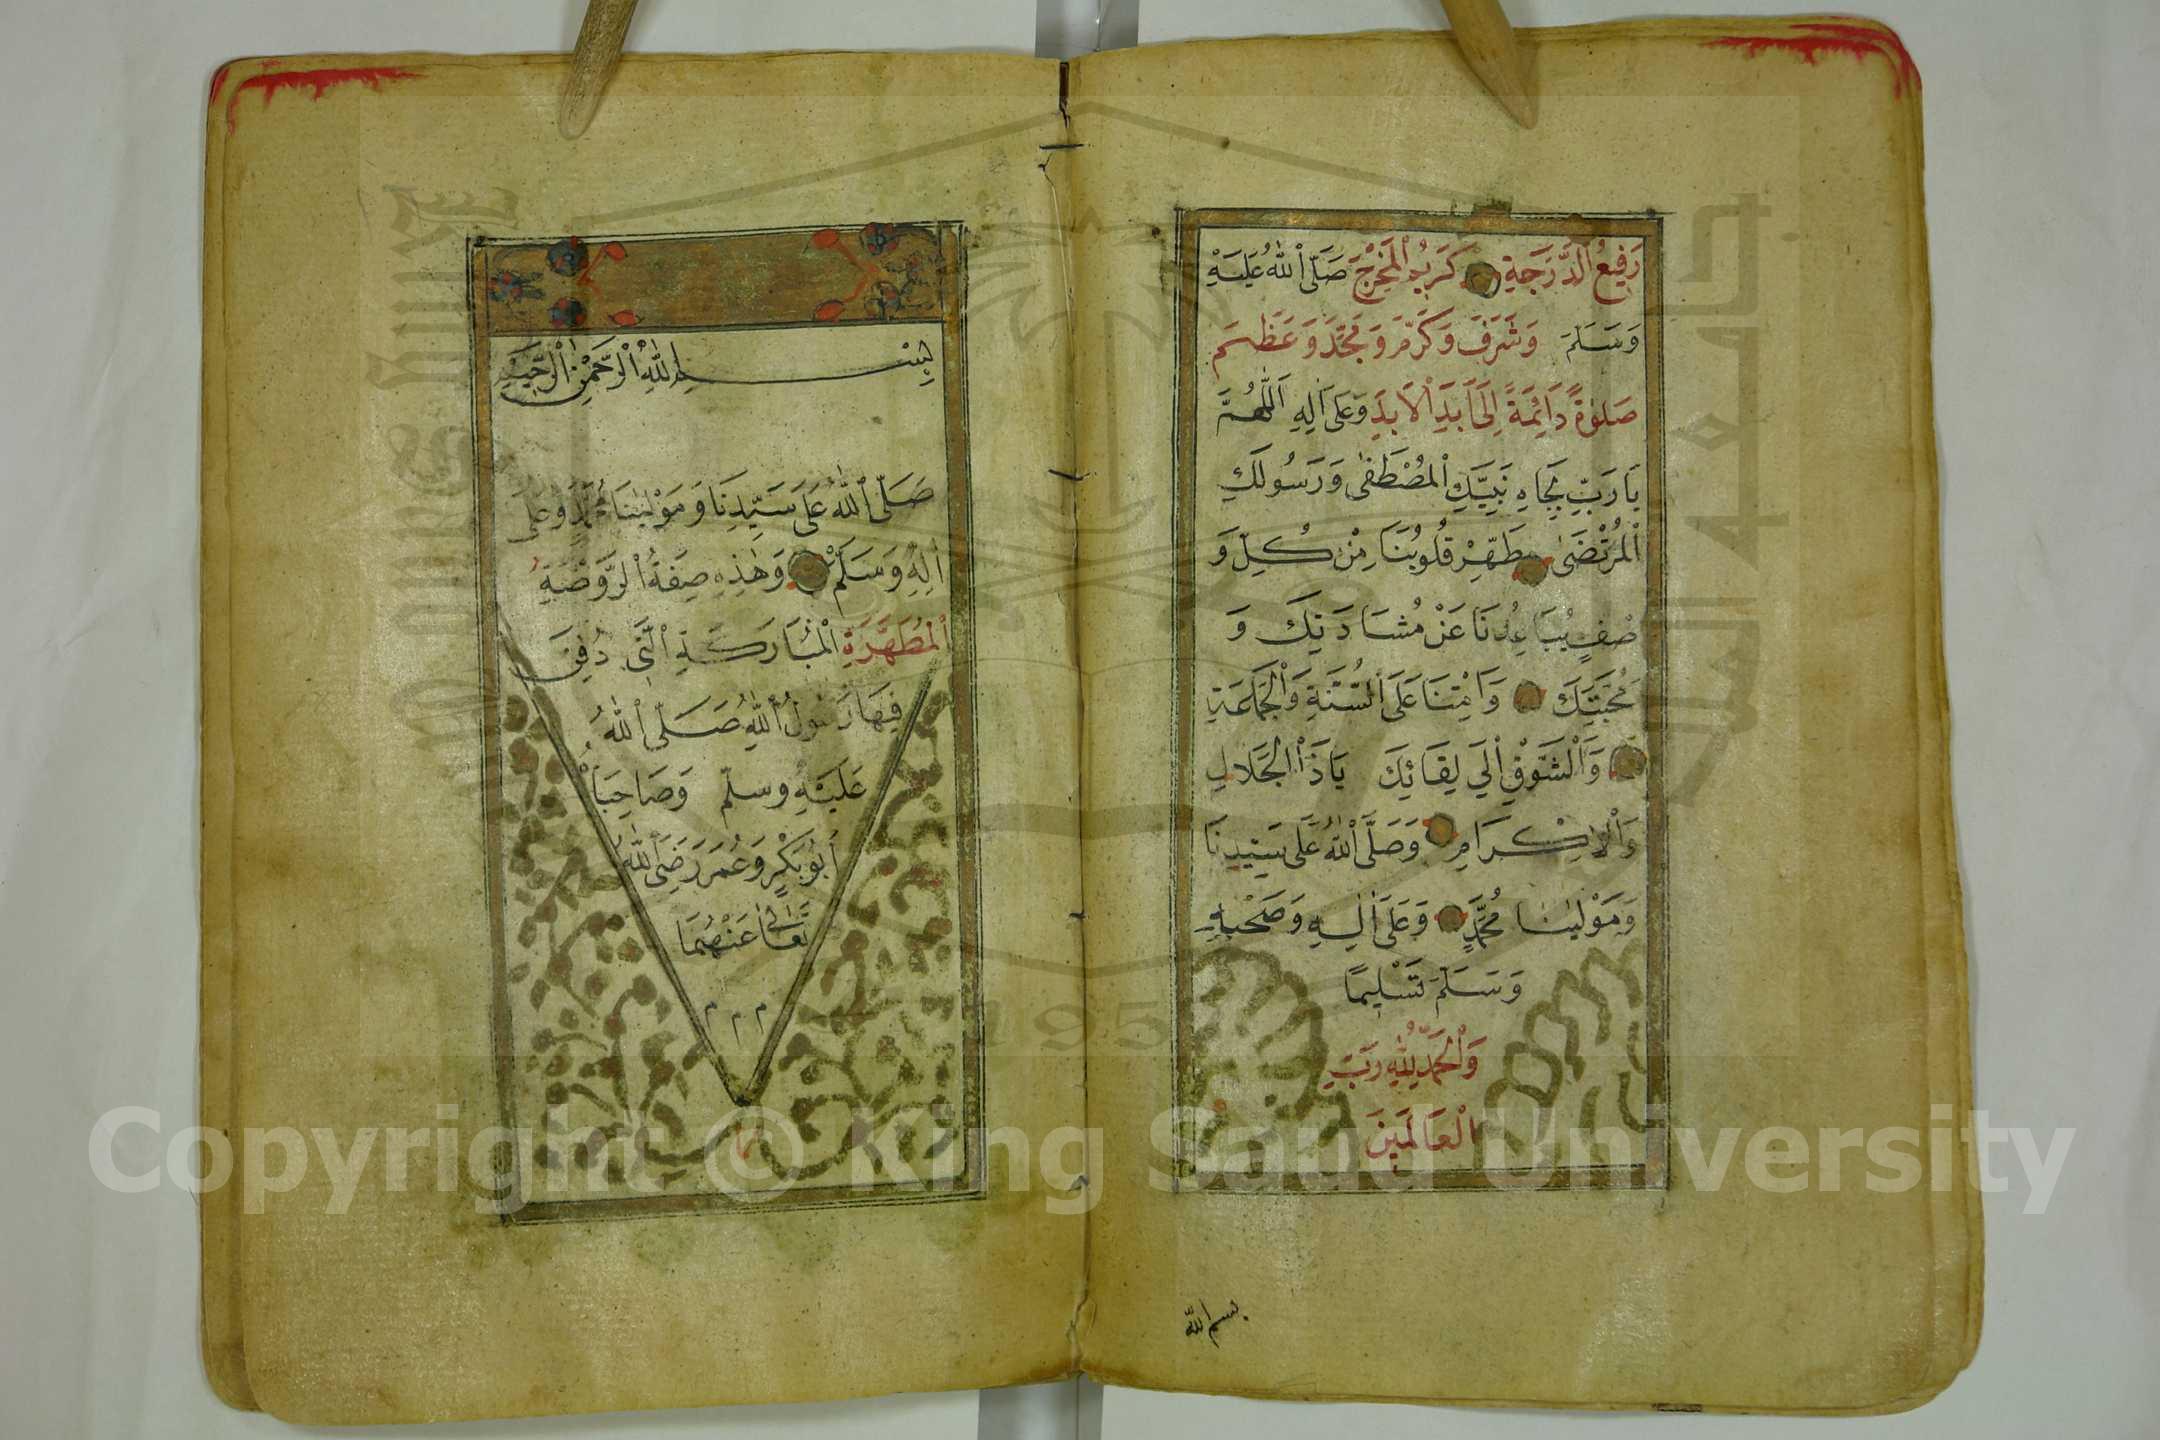 رَفِيعُ الدَّرَجَةِ كَرِيمُ الْمَخْرَجْ صَلَّى اللهُ عَلَيْهِ
وَسَلَّمَ وَشَرَّفَ وَكَرَّمَ وَمَجَّدَ وَعَظَّمَ
صَلٰوةً دَائِمَةً اِلَى اَبَدِ الْاَبَدِ وَعَلَى اٰلِهِ اَللّٰهُمَّ
يَا رَبِّ بِجَاهِ نَبِيِّكَ الْمُصْطَفٰى وَرَسُولِكَ
الْمُرْتَضٰى طَهِّرْ قُلُوبُنَا مِنْ كُلِّ وَ
صْفٍ يُبَاعِدُنَا عَنْ مُشَادَتِكَ وَ
مَحَبَّتِكَ وَاَمِتْنَا عَلَى السُّنَّةِ وَالْجَمَاعَةِ
وَالشَّوْقِ اِلَى لِقَائِكَ يَاذَا الْجَلَالِ
وَالْاِكْرَامِ وَصَلَّى اللهُ عَلَى سَيِّدِنَا
وَمَوْلٰينَا مُحَمَّدٍ وَعَلَى اٰلِهِ وَصَحْبِهِ
وَسَلَّمَ تَسْلِيمًا
وَالْحَمْدُ لِلّٰهِ رَبِّ
الْعَالَمِينَ
بسم الله
بِسْمِ اللهِ الرَّحْمٰنِ الرَّحِيمِ
صَلَّى اللهُ عَلَى سَيِّدِنَا وَمَوْلٰينَا مُحَمَّدٍ وَعَلَى
اٰلِهِ وَسَلَّمْ وَهٰذِهِ صِفَةُ الرَّوْضَةِ
الْمُطَهَّرَةِ الْمُبَارَكَةِ الَّتِي دُفِنَ
فِيهَا رَسُولُ اللهِ صَلَّى اللهُ
عَلَيْهِ وسلم وَصَاحِبَاهُ
أَبُو بَكْرٍ وَعُمَرَ رَضِيَ اللهُ
تَعَالٰى عَنْهُمَا
م م م
Copyright © King Saud University
جامعة الملك سعود
1957